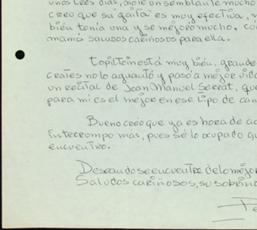 unos tres días, a ole un semblante mucho
creo que su gaita es muy efectiva,
bién tenía una y se mejoró mucho.
mamá saludos cariñosos para ella.
está muy bién, grande
no lo aguantó y pasó a mejor vida
un recital de Joan Manuel Serrat, que
para mi es el mejor en ese tipo de can
Bueno creo que ya es hora de
interrumpo más, pues sé lo ocupado que
encuentro.
Deseando se encuentre de lo mejor
Saludos cariñosos, su sobrino